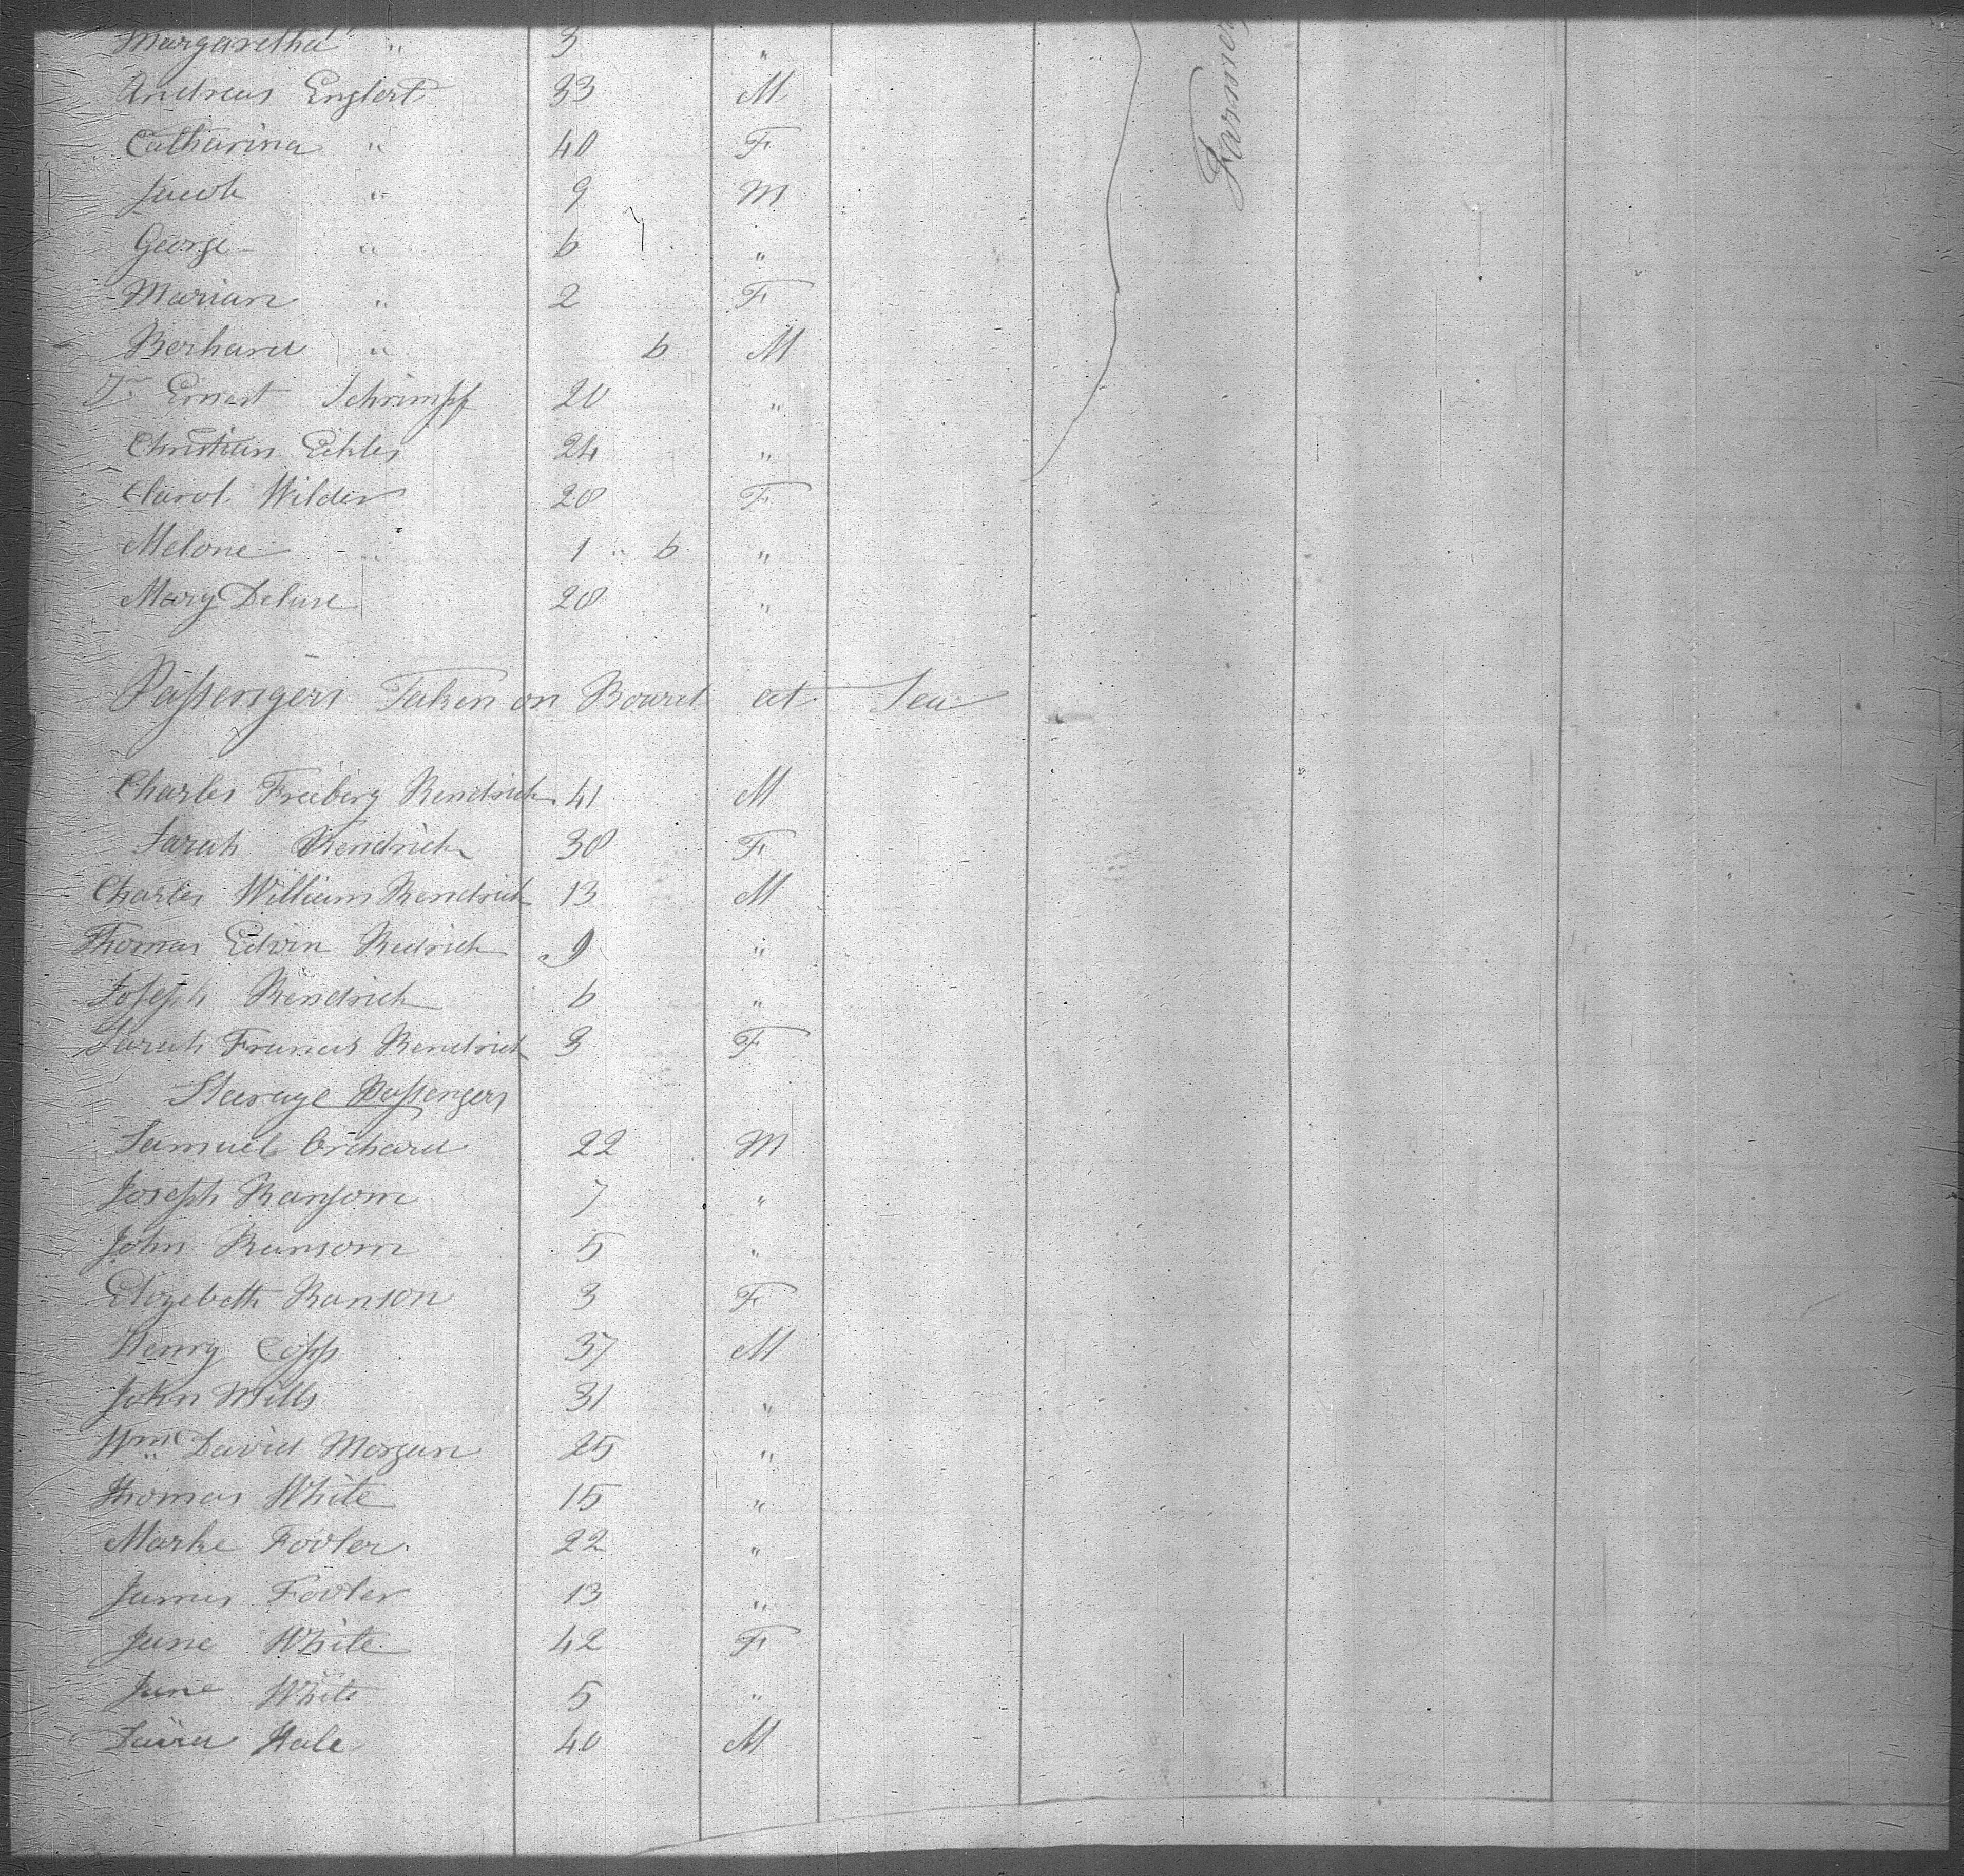 Margaretha " 3 "
Andreas Englert 33 M
Catharina " 40 F
Jacob " 9 M
George " 6 "
Marian " 2 F
Berhard " 6 M
Ernest Schrimpf 20 "
Christian Eckles 24 "
Carol. Wilder 28 F
Melone " 1 " 6 "
Mary Deluse 28 "
Farmers
Passengers Taken on Board at Sea
Charles Freeberg Kendrick 41 M
Sarah Kendrick 38 F
Charles William Kendrick 13 M
Thomas Edvin Kedrick 9 "
Joseph Kendrick 6 "
Sarah Francis Kendrick 3 F
Stearage Passengers
Samuel Orchard 22 M
Joseph Ransom 7 "
John Ransom 5 "
Elizebeth Ranson 3 F
Henry Copp 37 M
John Mills 31 "
Wm David Morgan 25 "
Thomas White 15 "
Marke Fovler 22 "
James Fovler 13 "
Jane White 42 F
Jane White 5 "
David Hale 40 M